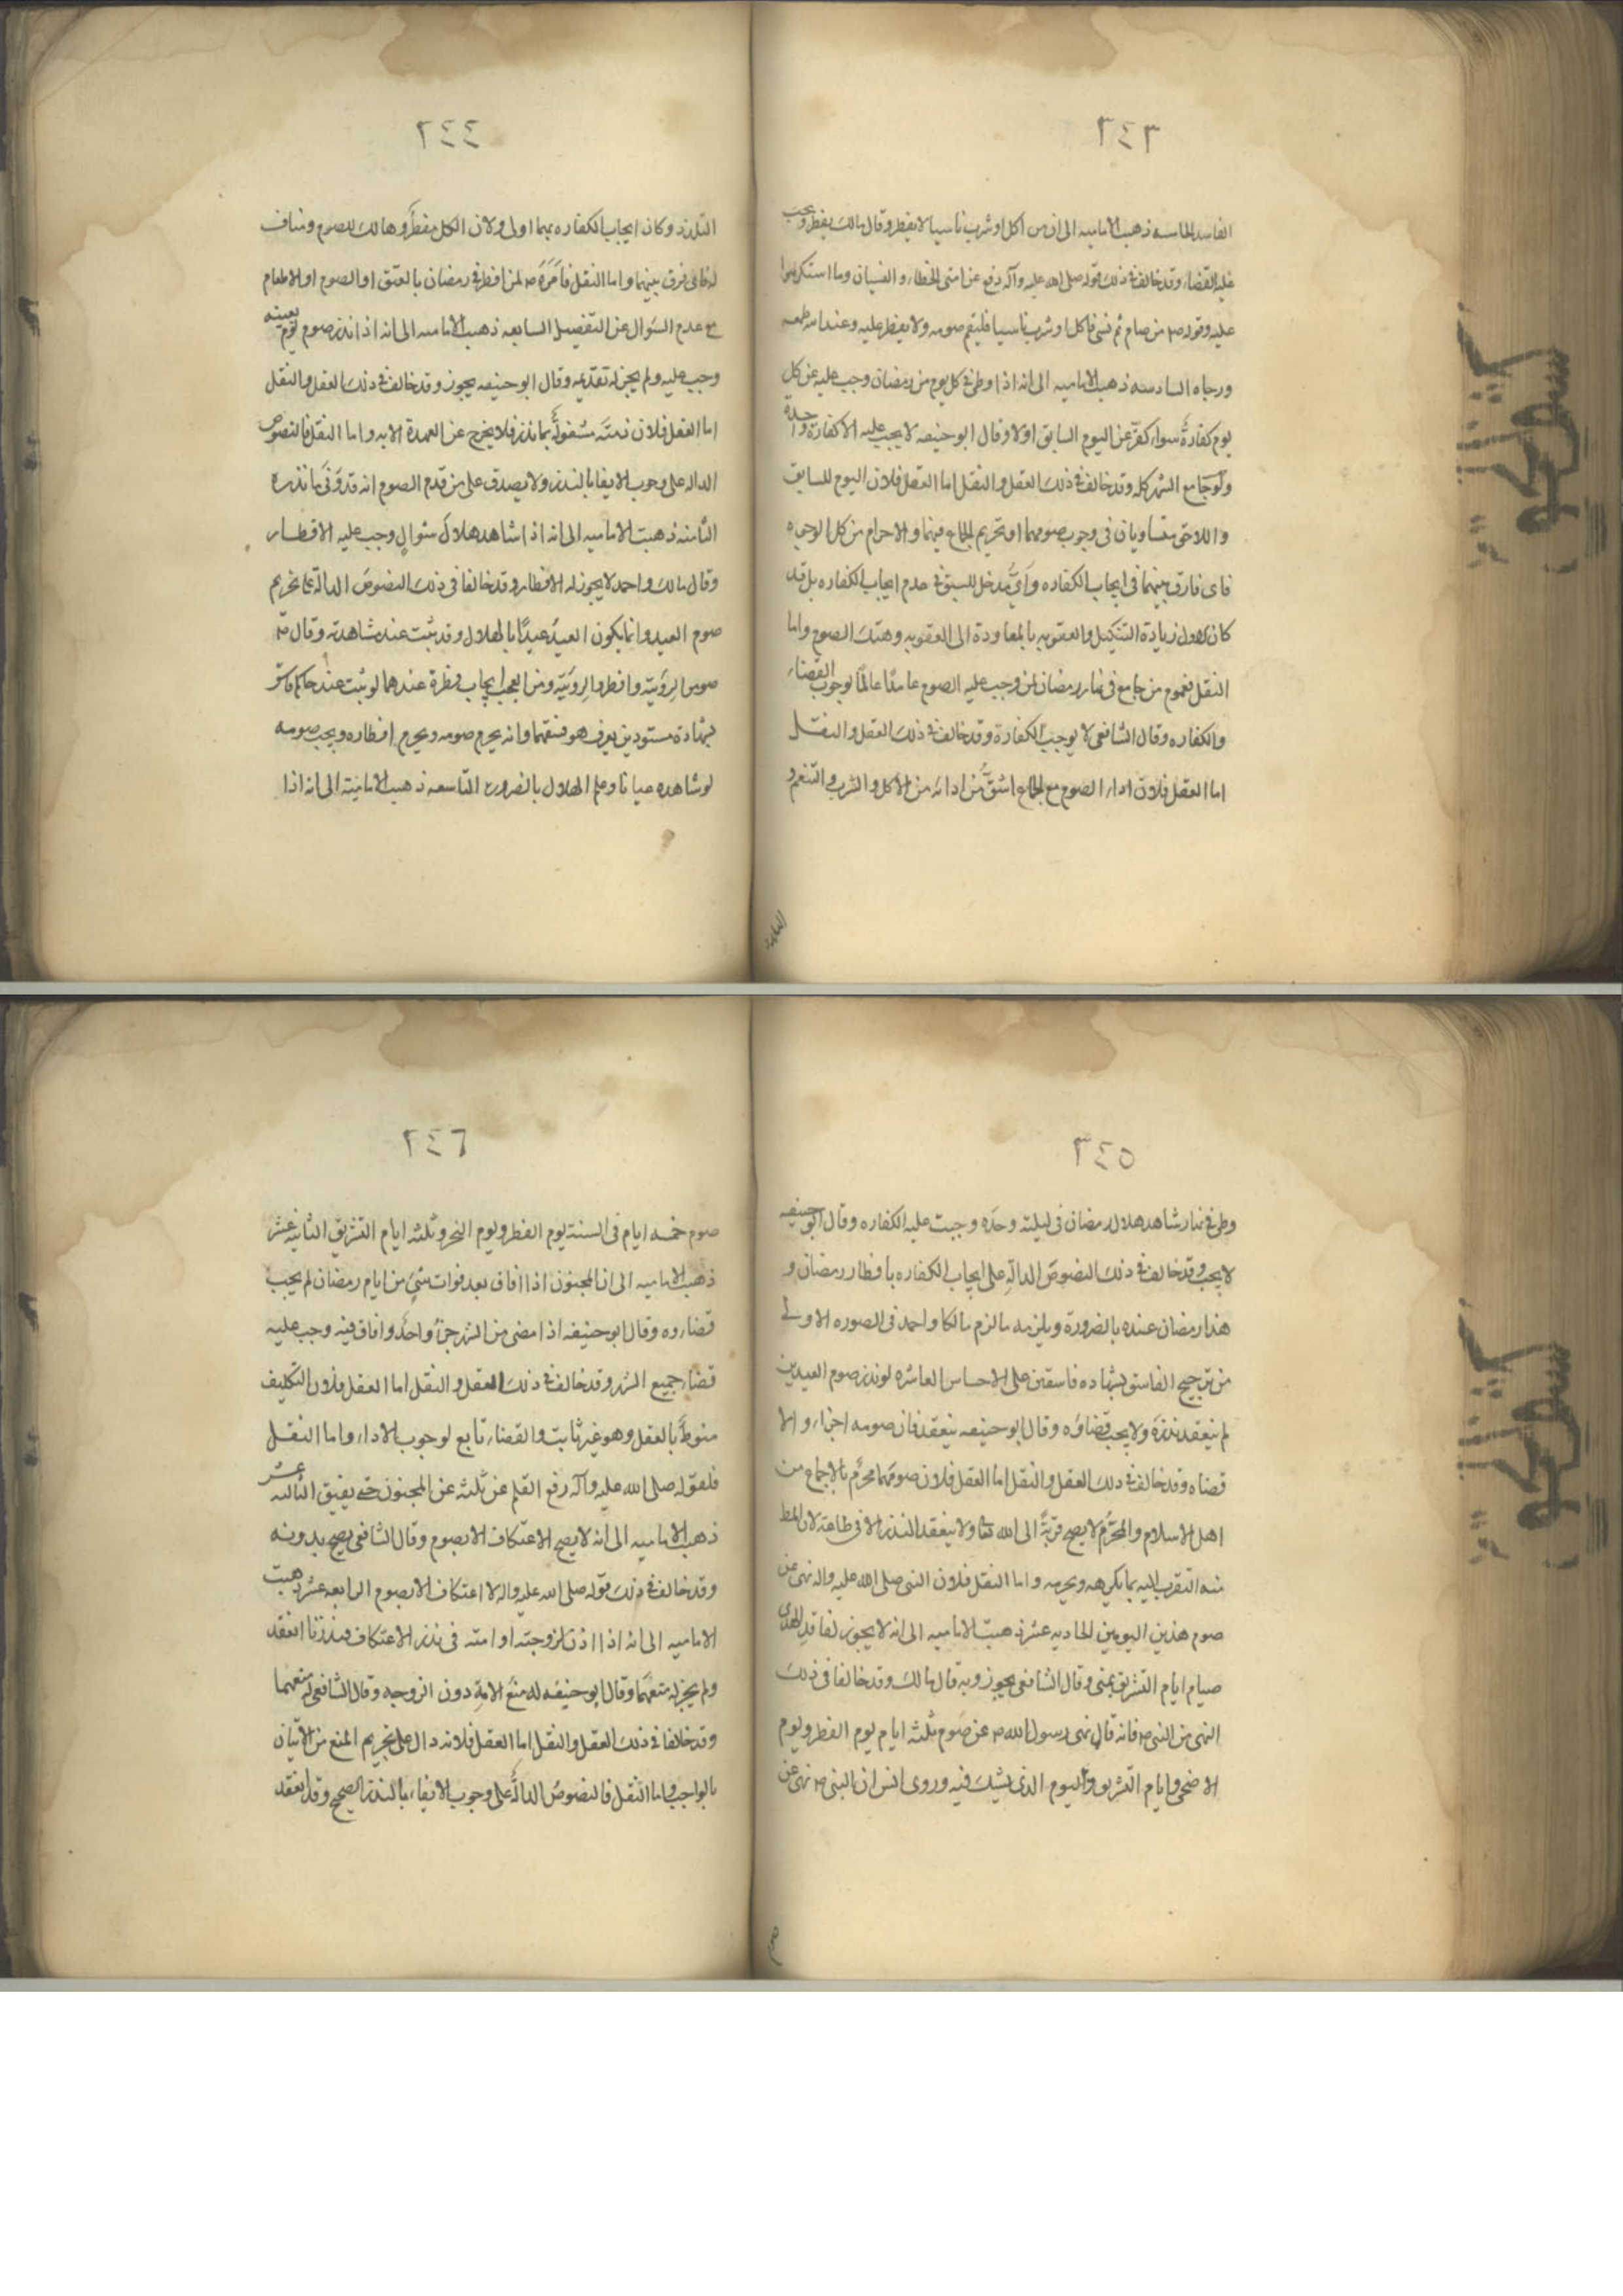 ٣٤٣
الفاسد الخامسه ذهبت الاماميه الى ان من اكل او شرب ناسيا لا يفطر وقال مالك يفطر ويجب
عليه القضاء وقد خالف في ذلك قوله صلى الله عليه وآله رفع عن امتى الخطاء والنسيان وما استكرهوا
عليه وقوله ص من صام ثم نسى فاكل او شرب ناسيا فليتم صومه ولا يفطر عليه وعند الله طعمه
ورجاه السادسه ذهبت الاماميه الى انه اذا وطئ في كل يوم من رمضان وجب عليه عن كل
يوم كفارةٌ سواء كفّر عن اليوم السابق اولا وقال ابو حنيفه لا يجب عليه الا كفارة واحدة
ولو جامع الشهر كله وقد خالف في ذلك العقل والنقل اما العقل فلان اليوم للسابق
واللاحق متساويان فى وجوب صومهما او تحريم الجماع فيهما والاحرام من كل الوجوه
فاى فارق بينهما فى ايجاب الكفاره واىّ مدخل للسبق في عدم ايجاب الكفاره بل قد
كان زيادة التنكيل والعقوبه بالمعاودة الى العقوبه وهتك الصوم واما
النقل فعموم من جامع فى نهار رمضان لمن وجب عليه الصوم عامدًا عالمًا لوجوب القضاء
والكفاره وقال الشافعى لا يوجب الكفارة وقد خالف في ذلك العقل والنقل
اما العقل فلان اداء الصوم مع الجماع اشقّ من ادائه من الاكل والشرب والتنعم و
٣٤٤
التلذذ وكان ايجاب الكفاره بهما اولى ولان الكل مفطر وهالك للصوم ومناف
له فاى فرق بينهما واما النقل فامره ص لمن افطر في رمضان بالعتق او الصوم او الاطعام
مع عدم السؤال عن التفصيل السابعه ذهبت الاماميه الى انه اذا نذر صوم يوم بعينه
وجب عليه ولم يجز له تقديمه وقال ابو حنيفه يجوز وقد خالف في ذلك العقل والنقل
اما العقل فلان ذمته مشغولةٌ بما نذر فلا يخرج عن العهدة الا به واما النقل فالنصوص
الداله على وجوب الايفا بالنذر ولا يصدق على من قدم الصوم انه قد وفى ما نذره
الثامنه ذهبت الاماميه الى انه اذا شاهد هلال شوال وجب عليه الافطار
وقال مالك واحمد لا يجوز له الافطار وقد خالفا فى ذلك النصوص الدالة على تحريم
صوم العيد وانما يكون العيد عيدًا بالهلال وقد ثبت عنده مشاهدته وقال ص
صوموا لرؤيته وافطروا لرؤيته ومن العجب ايجاب فطرة عندهما لو ثبت عند حاكم فاسق
بشهادة مستورين يعرف هو فسقهما وانه يحرم صومه ويحرم افطاره ويجب صومه
لو شاهده عيانا وعلم الهلال بالضروره التاسعه ذهبت الاماميه الى انه اذا
٣٤٥
وطئ في نهار شاهد هلال رمضان فى ليلته وحده وجبت عليه الكفاره وقال ابو حنيفه
لا يجب وقد خالف في ذلك النصوص الدالّة على ايجاب الكفاره بافطار رمضان و
هذا رمضان عنده بالضرورة ويلزمه ما لزم مالكا واحمد فى الصوره الاولى
من ترجيح الفاسق بشهاده فاسقين على الاحساس العاشره لو نذر صوم العيدين
لم ينعقد نذره ولا يجب قضاؤه وقال ابو حنيفه ينعقد فان صومه اجزاء والا
قضاه وقد خالف في ذلك العقل والنقل اما العقل فلان صومهما محرّم بالاجماع من
اهل الاسلام والمحرّم لا يصح قربةً الى الله تعا ولا ينعقد النذر الا فى طاعة لان المط
منه التقرب اليه بما يكرهه ويحرمه واما النقل فلان النبى صلى الله عليه واله نهى عن
صوم هذين اليومين الحاديه عشر ذهبت الاماميه الى انه لا يجوز لفاقد الهدى
صيام ايام التشريق بمنى وقال الشافعى يجوز وبه قال مالك وقد خالفا فى ذلك
النهى من النبى ص فانه قال نهى رسول الله ص عن صوم ثلثه ايام يوم الفطر ويوم
الاضحى وايام التشريق واليوم الذى يشك فيه وروى انس ان النبى ص نهى عن
صوم
٣٤٦
صوم خمسه ايام فى السنة يوم الفطر ويوم النحر وثلثه ايام التشريق الثانيه عشر
ذهبت الاماميه الى ان المجنون اذا افاق بعد فوات شئ من ايام رمضان لم يجب
قضاؤه وقال ابو حنيفه اذا مضى من الشهر جزء واحد وافاق فيه وجب عليه
قضاء جميع الشهر وقد خالف في ذلك العقل والنقل اما العقل فلان التكليف
منوط بالعقل وهو غير ثابت والقضاء تابع لوجوب الاداء واما النقل
فلقوله صلى الله عليه وآله رفع القلم عن ثلثه عن المجنون حتى يفيق الثالثه عشر
ذهبت الاماميه الى انه لا يصح الاعتكاف الا بصوم وقال الشافعى يصح بدونه
وقد خالف في ذلك قوله صلى الله عليه واله لا اعتكاف الا بصوم الرابعه عشر ذهبت
الاماميه الى انه اذا اذن لزوجته او امته فى نذر الاعتكاف فنذرتا انعقد
ولم يجز له منعهما وقال ابو حنيفه له منع الامة دون الزوجه وقال الشافعى له منعهما
وقد خالفا في ذلك العقل والنقل اما العقل فلانه دال على تحريم المنع من الاتيان
بالواجب واما النقل فالنصوص الدالّة على وجوب الايفاء بالنذر الصحيح وقد انعقد